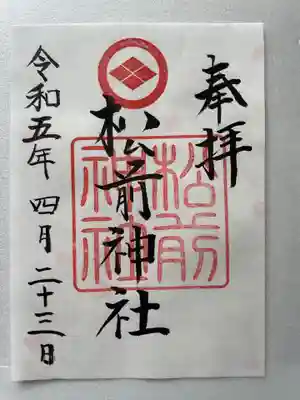 奉拝
松前神社
松前
神社
令和五年 四月 二十三日